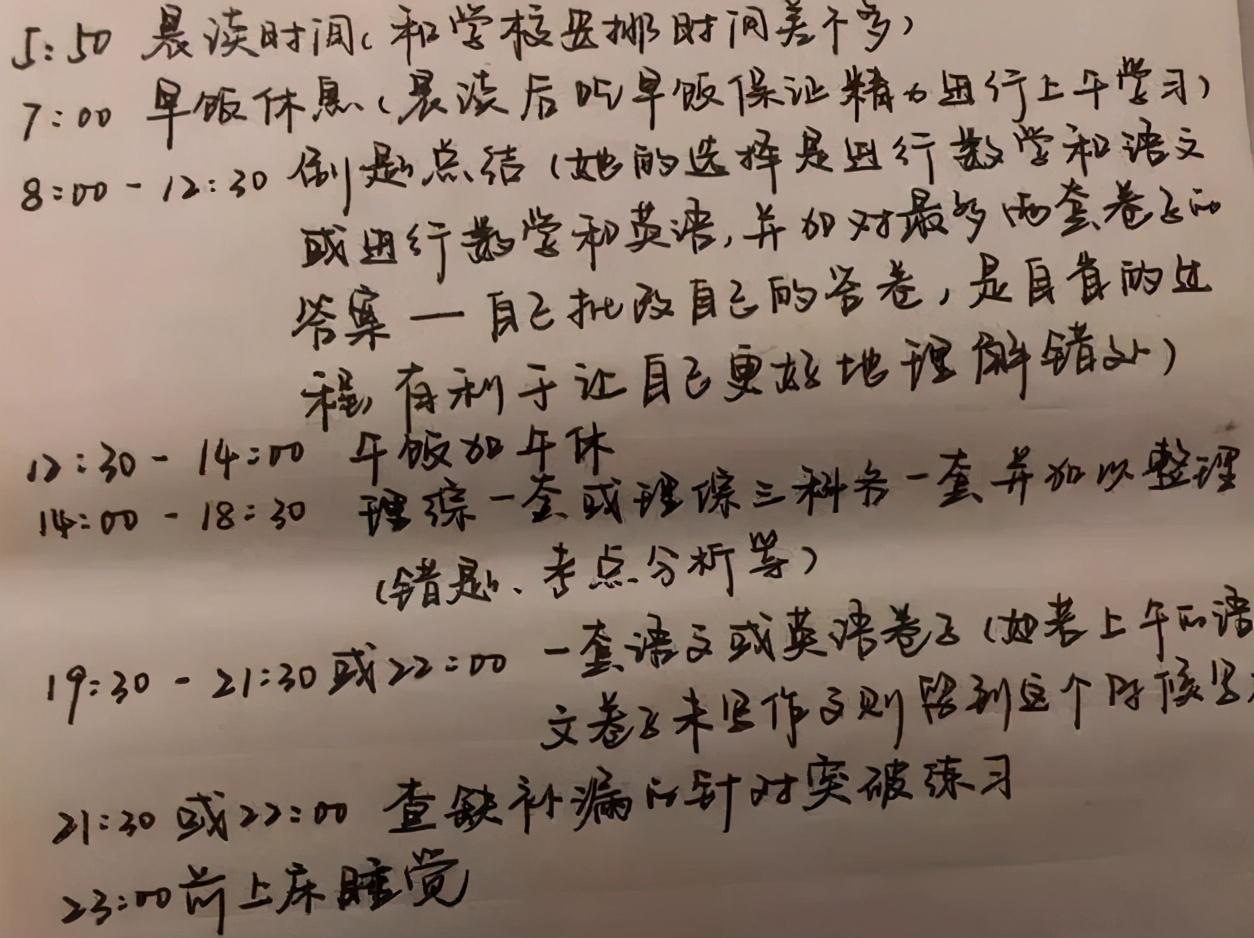 5:50 晨读时间(和学校安排时间差不多)
7:00 早饭休息(晨读后吃早饭保证精力进行上午学习)
8:00-12:30 刷题总结(她的选择是进行数学和语文
或进行数学和英语,并加对最多两套卷子的
答案一自己批改自己的答卷,是自省的过
程,有利于让自己更好地理解错处)
12:30-14:00 午饭加午休
14:00-18:30 理综一套或理综三科各一套并加以整理
(错题、考点分析等)
19:30-21:30或22:00 一套语文或英语卷子(如若上午的语
文卷子未写作文则留到这个时候写
21:30或22:00 查缺补漏的针对突破练习
23:00前上床睡觉